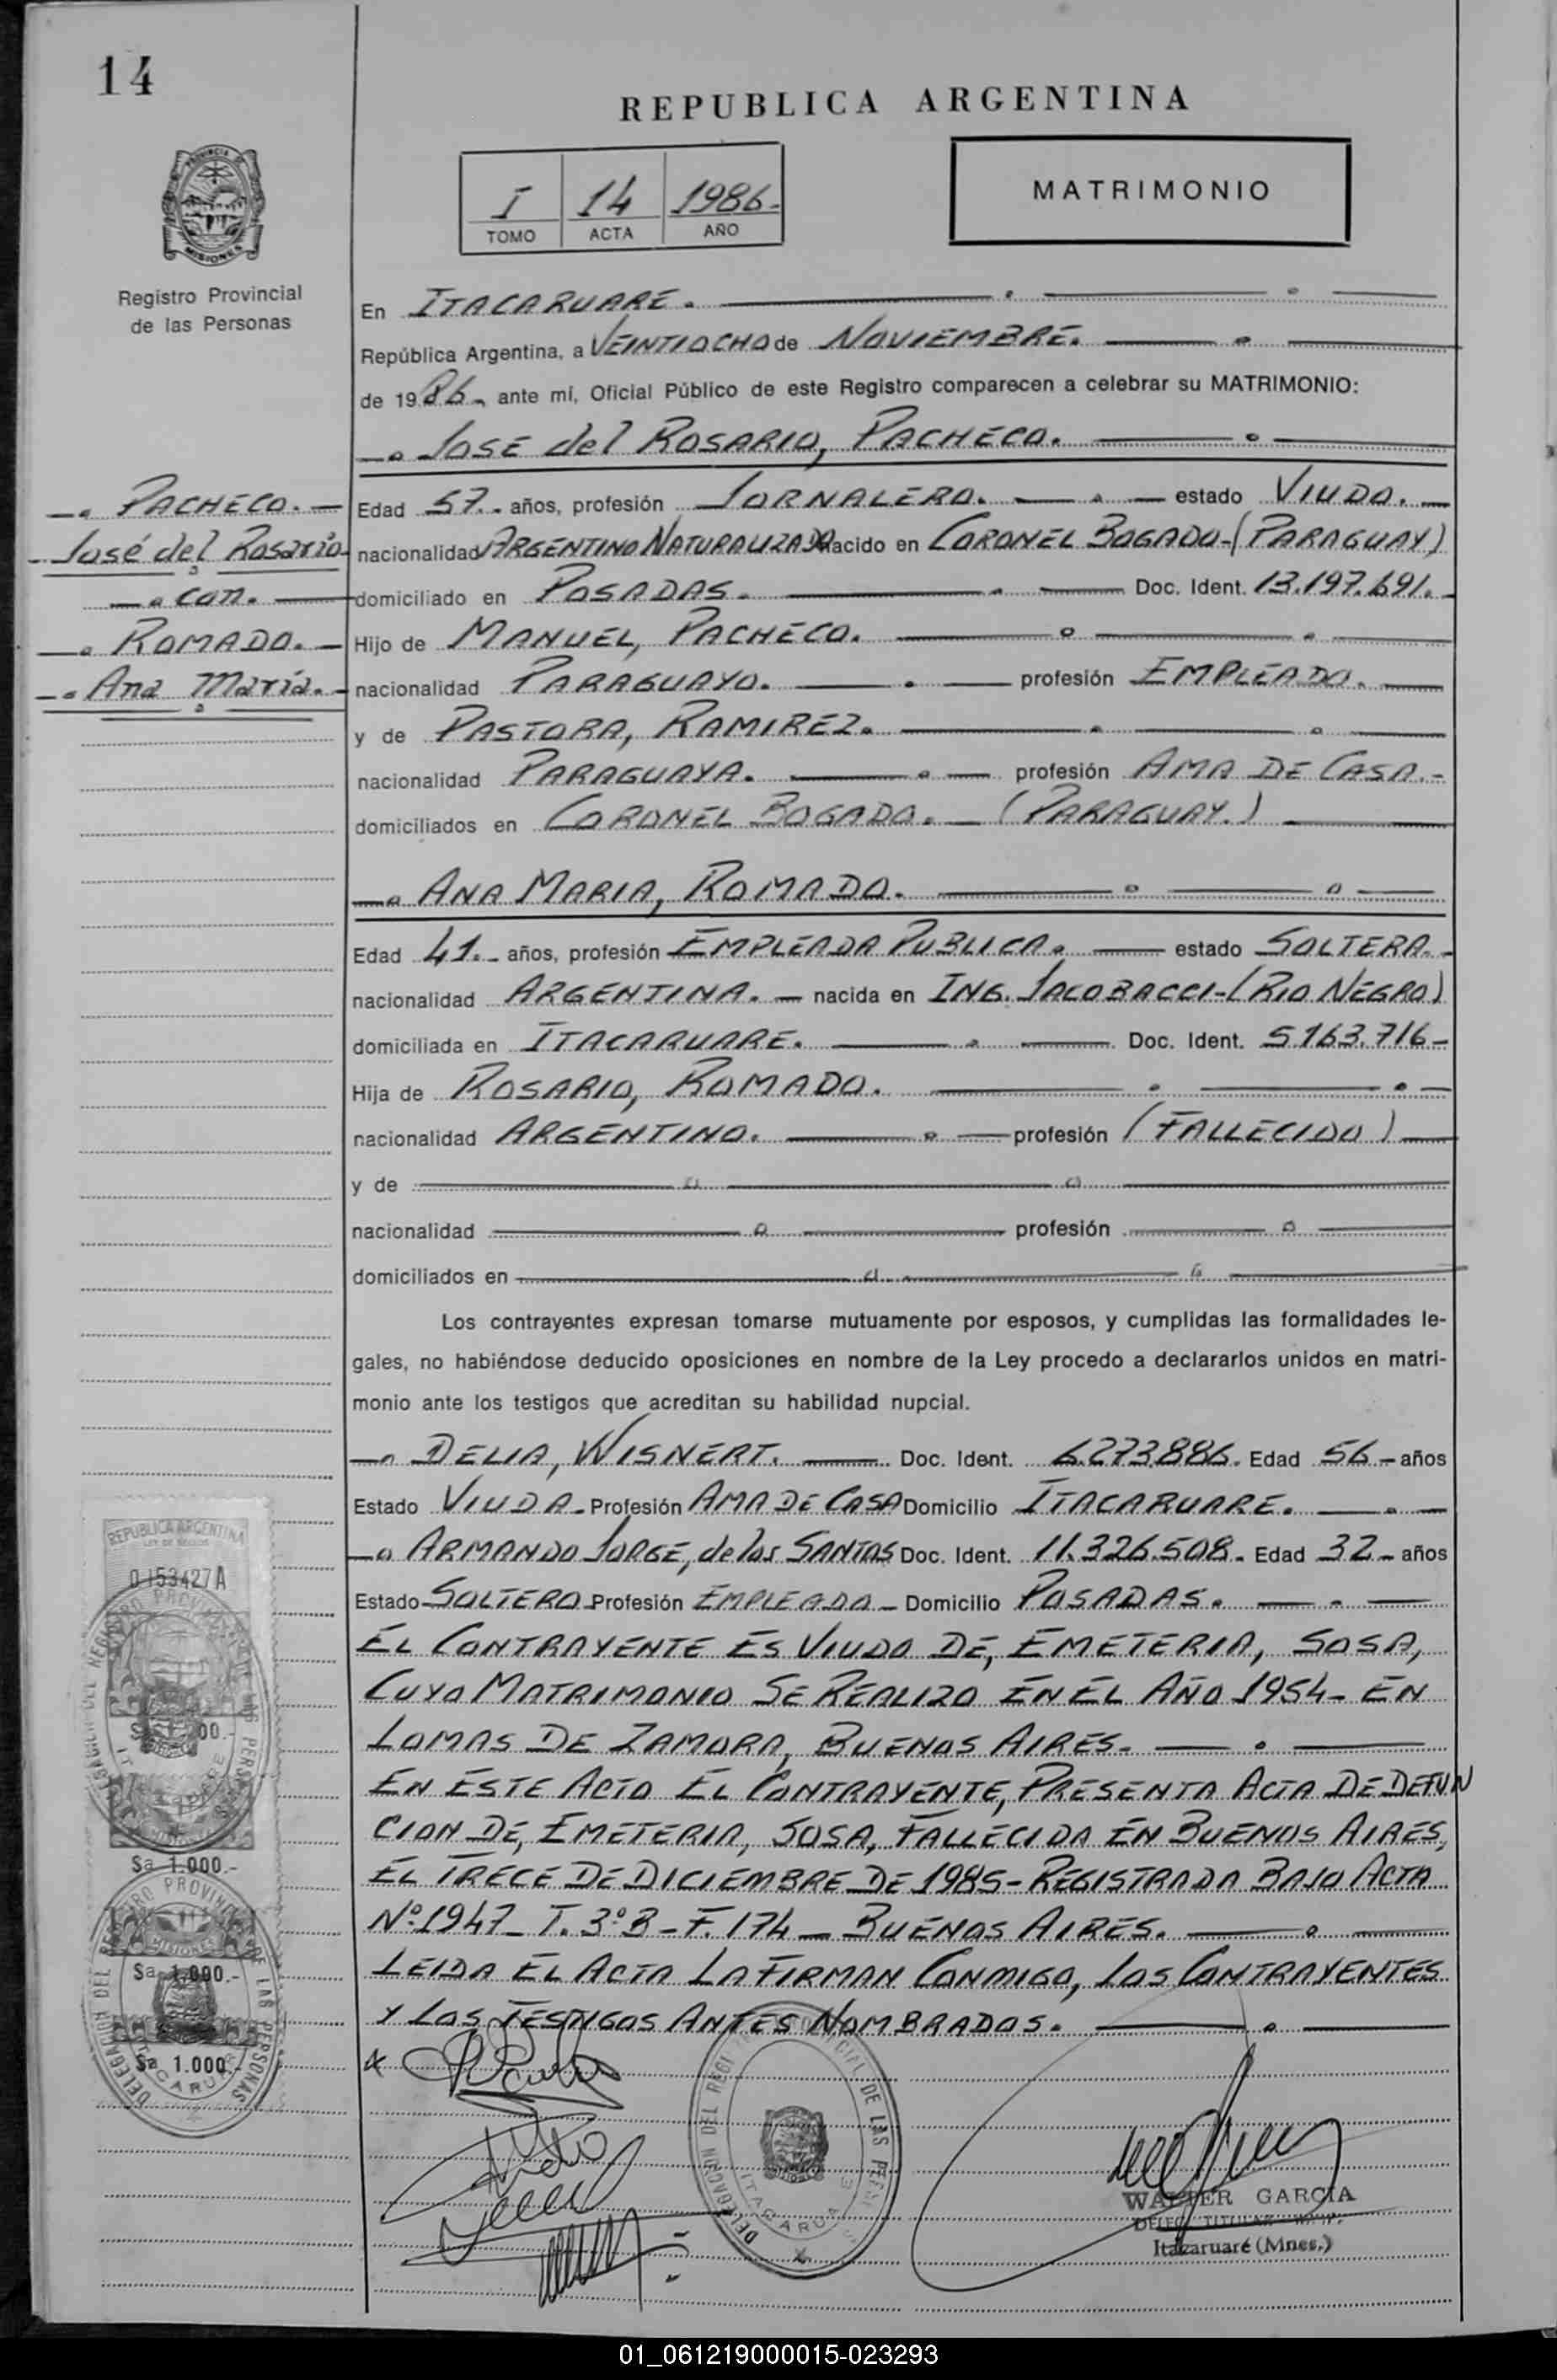 14
REPUBLICA ARGENTINA
I 14 1986.
TOMO ACTA AÑO
MATRIMONIO
PROVINCIA DE
MISIONES
Registro Provincial
de las Personas
En ITACARUARE.
República Argentina, a VEINTIOCHO de NOVIEMBRE.
de 1986 ante mí, Oficial Público de este Registro comparecen a celebrar su MATRIMONIO:
JOSE del ROSARIO, PACHECO.
PACHECO.
José del Rosario
con.
ROMADO.
Ana María.
Edad 57. años, profesión JORNALERO. estado VIUDO.
nacionalidad ARGENTINO NATURALIZADO nacido en CORONEL BOGADO-(PARAGUAY)
domiciliado en POSADAS. Doc. Ident. 13.197.691.
Hijo de MANUEL, PACHECO.
nacionalidad PARAGUAYO. profesión EMPLEADO.
y de PASTORA, RAMIREZ.
nacionalidad PARAGUAYA. profesión AMA DE CASA.-
domiciliados en CORONEL BOGADO. - (PARAGUAY.)
ANA MARIA, ROMADO.
Edad 41. años, profesión EMPLEADA PUBLICA. estado SOLTERA.
nacionalidad ARGENTINA. nacida en ING. JACOBACCI-(RIO NEGRO)
domiciliada en ITACARUARE. Doc. Ident. 5.163.716-
Hija de ROSARIO, ROMADO.
nacionalidad ARGENTINO. profesión (FALLECIDO)
y de
nacionalidad profesión
domiciliados en
Los contrayentes expresan tomarse mutuamente por esposos, y cumplidas las formalidades le-
gales, no habiéndose deducido oposiciones en nombre de la Ley procedo a declararlos unidos en matri-
monio ante los testigos que acreditan su habilidad nupcial.
DELIA, WISNERT. Doc. Ident. 6.273.886. Edad 56 - años
Estado VIUDA - Profesión AMA DE CASA Domicilio ITACARUARE.
ARMANDO JORGE, de los SANTOS Doc. Ident. 11.326.508. Edad 32 - años
Estado SOLTERO Profesión EMPLEADO - Domicilio POSADAS.
EL CONTRAYENTE ES VIUDO DE, EMETERIA, SOSA,
CUYO MATRIMONIO SE REALIZO EN EL AÑO 1954- EN
LOMAS DE ZAMORA, BUENOS AIRES.
EN ESTE ACTO EL CONTRAYENTE, PRESENTA ACTA DE DEFUN
CION DE, EMETERIA, SOSA, FALLECIDA EN BUENOS AIRES,
EL TRECE DE DICIEMBRE DE 1985- REGISTRADA BAJO ACTA
Nº 1947 T. 3º B - F. 174 - BUENOS AIRES.
LEIDA EL ACTA LA FIRMAN CONMIGO, LOS CONTRAYENTES
Y LOS TESTIGOS ANTES NOMBRADOS.
REPUBLICA ARGENTINA
LEY DE SELLOS
0153427A
$a 1.000.-
$a 1.000.-
$a 1.000.-
DELEGACION DEL REGISTRO PROVINCIAL DE LAS PERSONAS
ITACARUARE
WALTER GARCIA
DELEG. TITULAR
Itacaruaré (Mnes.)
01_061219000015-023293